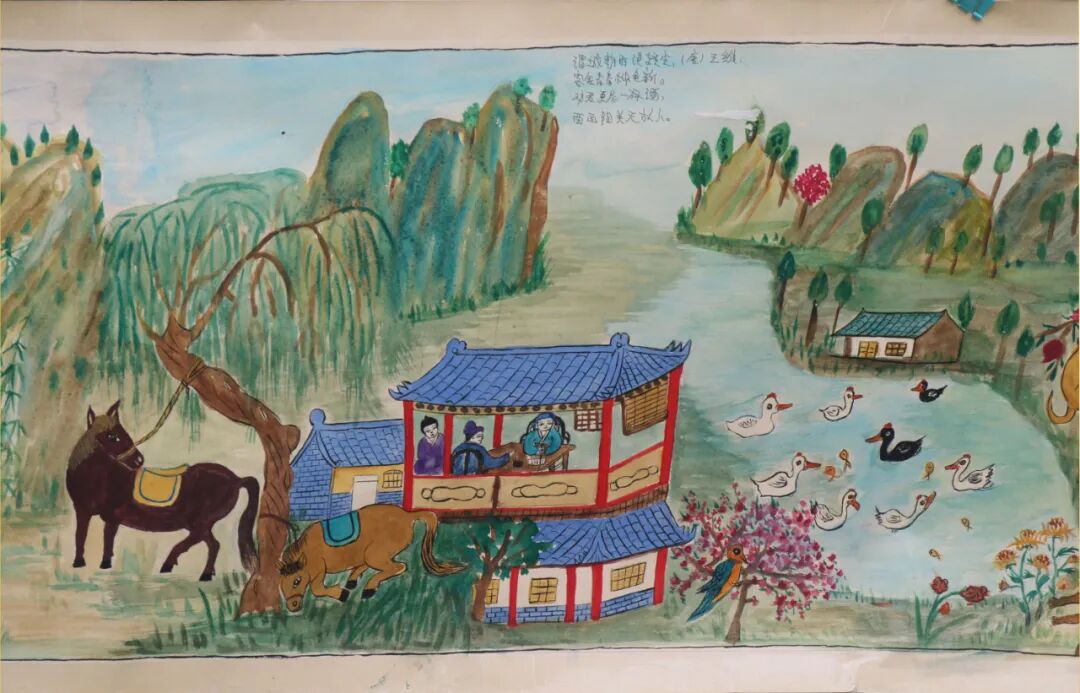 渭城朝雨浥轻尘,(唐)王维.
客舍青青柳色新。
劝君更尽一杯酒,
西出阳关无故人。